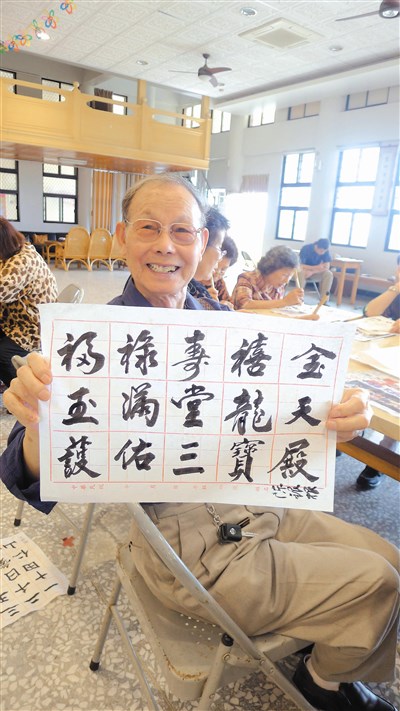 福祿壽禧金
玉滿堂龍天
護佑三寶殿